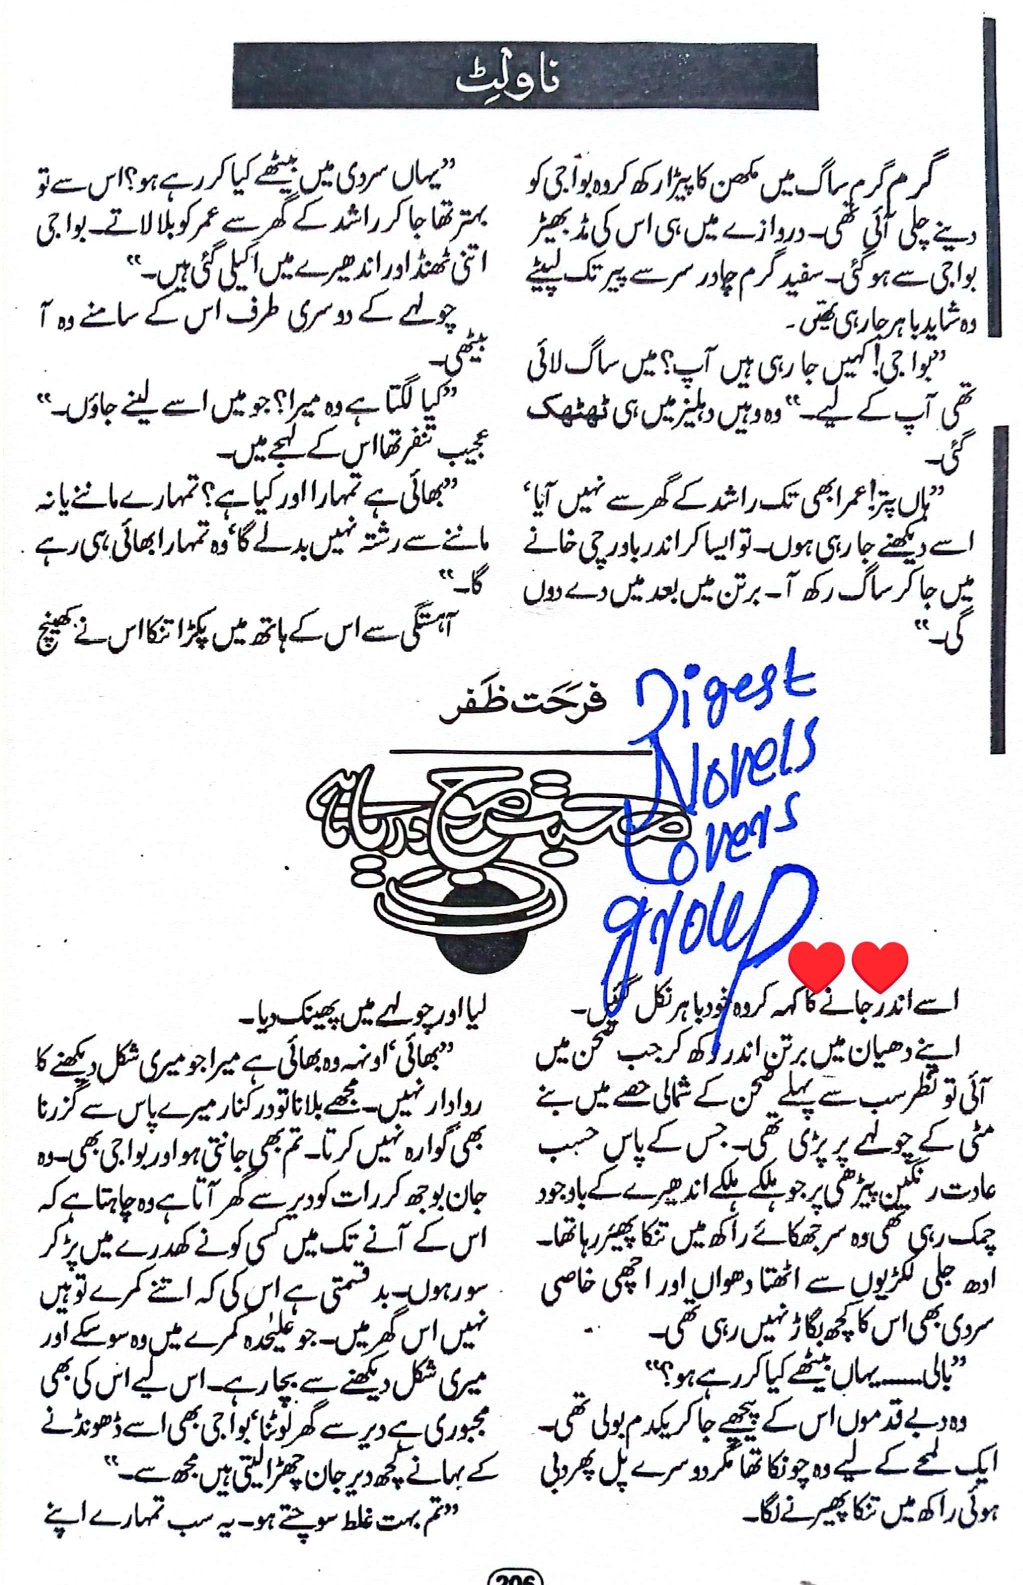 ناولٹ
گرم گرم ساگ میں مکھن کا پیڑا رکھ کر وہ بوا جی کو
دینے چلی آئی تھی۔ دروازے میں ہی اس کی مڈ بھیڑ
بوا جی سے ہو گئی۔ سفید گرم چادر سر سے پیر تک لپیٹے
وہ شاید باہر جا رہی تھیں۔
”بوا جی! کہیں جا رہی ہیں آپ؟ میں ساگ لائی
تھی آپ کے لیے۔“ وہ وہیں دہلیز میں ہی ٹھٹھک
گئی۔
”ہاں پتر! عمر ابھی تک راشد کے گھر سے نہیں آیا‘
اسے دیکھنے جا رہی ہوں۔ تو ایسا کر اندر باورچی خانے
میں جا کر ساگ رکھ آ۔ برتن میں بعد میں دے دوں
گی۔“
اسے اندر جانے کا کہہ کر وہ خود باہر نکل گئیں۔
اپنے دھیان میں برتن اندر رکھ کر جب صحن میں
آئی تو نظر سب سے پہلے صحن کے شمالی حصے میں بنے
مٹی کے چولہے پر پڑی تھی۔ جس کے پاس حسب
عادت رنگین پیڑھی پر جو ہلکے ہلکے اندھیرے کے باوجود
چمک رہی تھی وہ سر جھکائے راکھ میں تنکا پھیر رہا تھا۔
ادھ جلی لکڑیوں سے اٹھتا دھواں اور اچھی خاصی
سردی بھی اس کا کچھ بگاڑ نہیں رہی تھی۔
”بالی...... یہاں بیٹھے کیا کر رہے ہو؟“
وہ دبے قدموں اس کے پیچھے جا کر یکدم بولی تھی۔
ایک لمحے کے لیے وہ چونکا تھا مگر دوسرے پل پھر دبی
ہوئی راکھ میں تنکا پھیرنے لگا۔
”یہاں سردی میں بیٹھے کیا کر رہے ہو؟ اس سے تو
بہتر تھا جا کر راشد کے گھر سے عمر کو بلا لاتے۔ بوا جی
اتنی ٹھنڈ اور اندھیرے میں اکیلی گئی ہیں۔“
چولہے کے دوسری طرف اس کے سامنے وہ آ
بیٹھی۔
”کیا لگتا ہے وہ میرا؟ جو میں اسے لینے جاؤں۔“
عجیب تنفر تھا اس کے لہجے میں۔
”بھائی ہے تمہارا اور کیا ہے؟ تمہارے ماننے یا نہ
ماننے سے رشتہ نہیں بدلے گا‘ وہ تمہارا بھائی ہی رہے
گا۔“
آہستگی سے اس کے ہاتھ میں پکڑا تنکا اس نے کھینچ
لیا اور چولہے میں پھینک دیا۔
”بھائی‘ اونہہ وہ بھائی ہے میرا جو میری شکل دیکھنے کا
روادار نہیں۔ مجھے بلانا تو درکنار میرے پاس سے گزرنا
بھی گوارہ نہیں کرتا۔ تم بھی جانتی ہو اور بوا جی بھی۔ وہ
جان بوجھ کر رات کو دیر سے گھر آتا ہے وہ چاہتا ہے کہ
اس کے آنے تک میں کسی کونے کھدرے میں پڑ کر
سو رہوں۔ بدقسمتی ہے اس کی کہ اتنے کمرے تو ہیں
نہیں اس گھر میں۔ جو علیحدہ کمرے میں وہ سو سکے اور
میری شکل دیکھنے سے بچا رہے۔ اس لیے اس کی بھی
مجبوری ہے دیر سے گھر لوٹنا‘ بوا جی بھی اسے ڈھونڈنے
کے بہانے کچھ دیر جان چھڑا لیتی ہیں مجھ سے۔“
”تم بہت غلط سوچتے ہو۔ یہ سب تمہارے اپنے
فرحت ظفر
محبت موج دریا ہے
Digest
Novels
Lovers
group
206